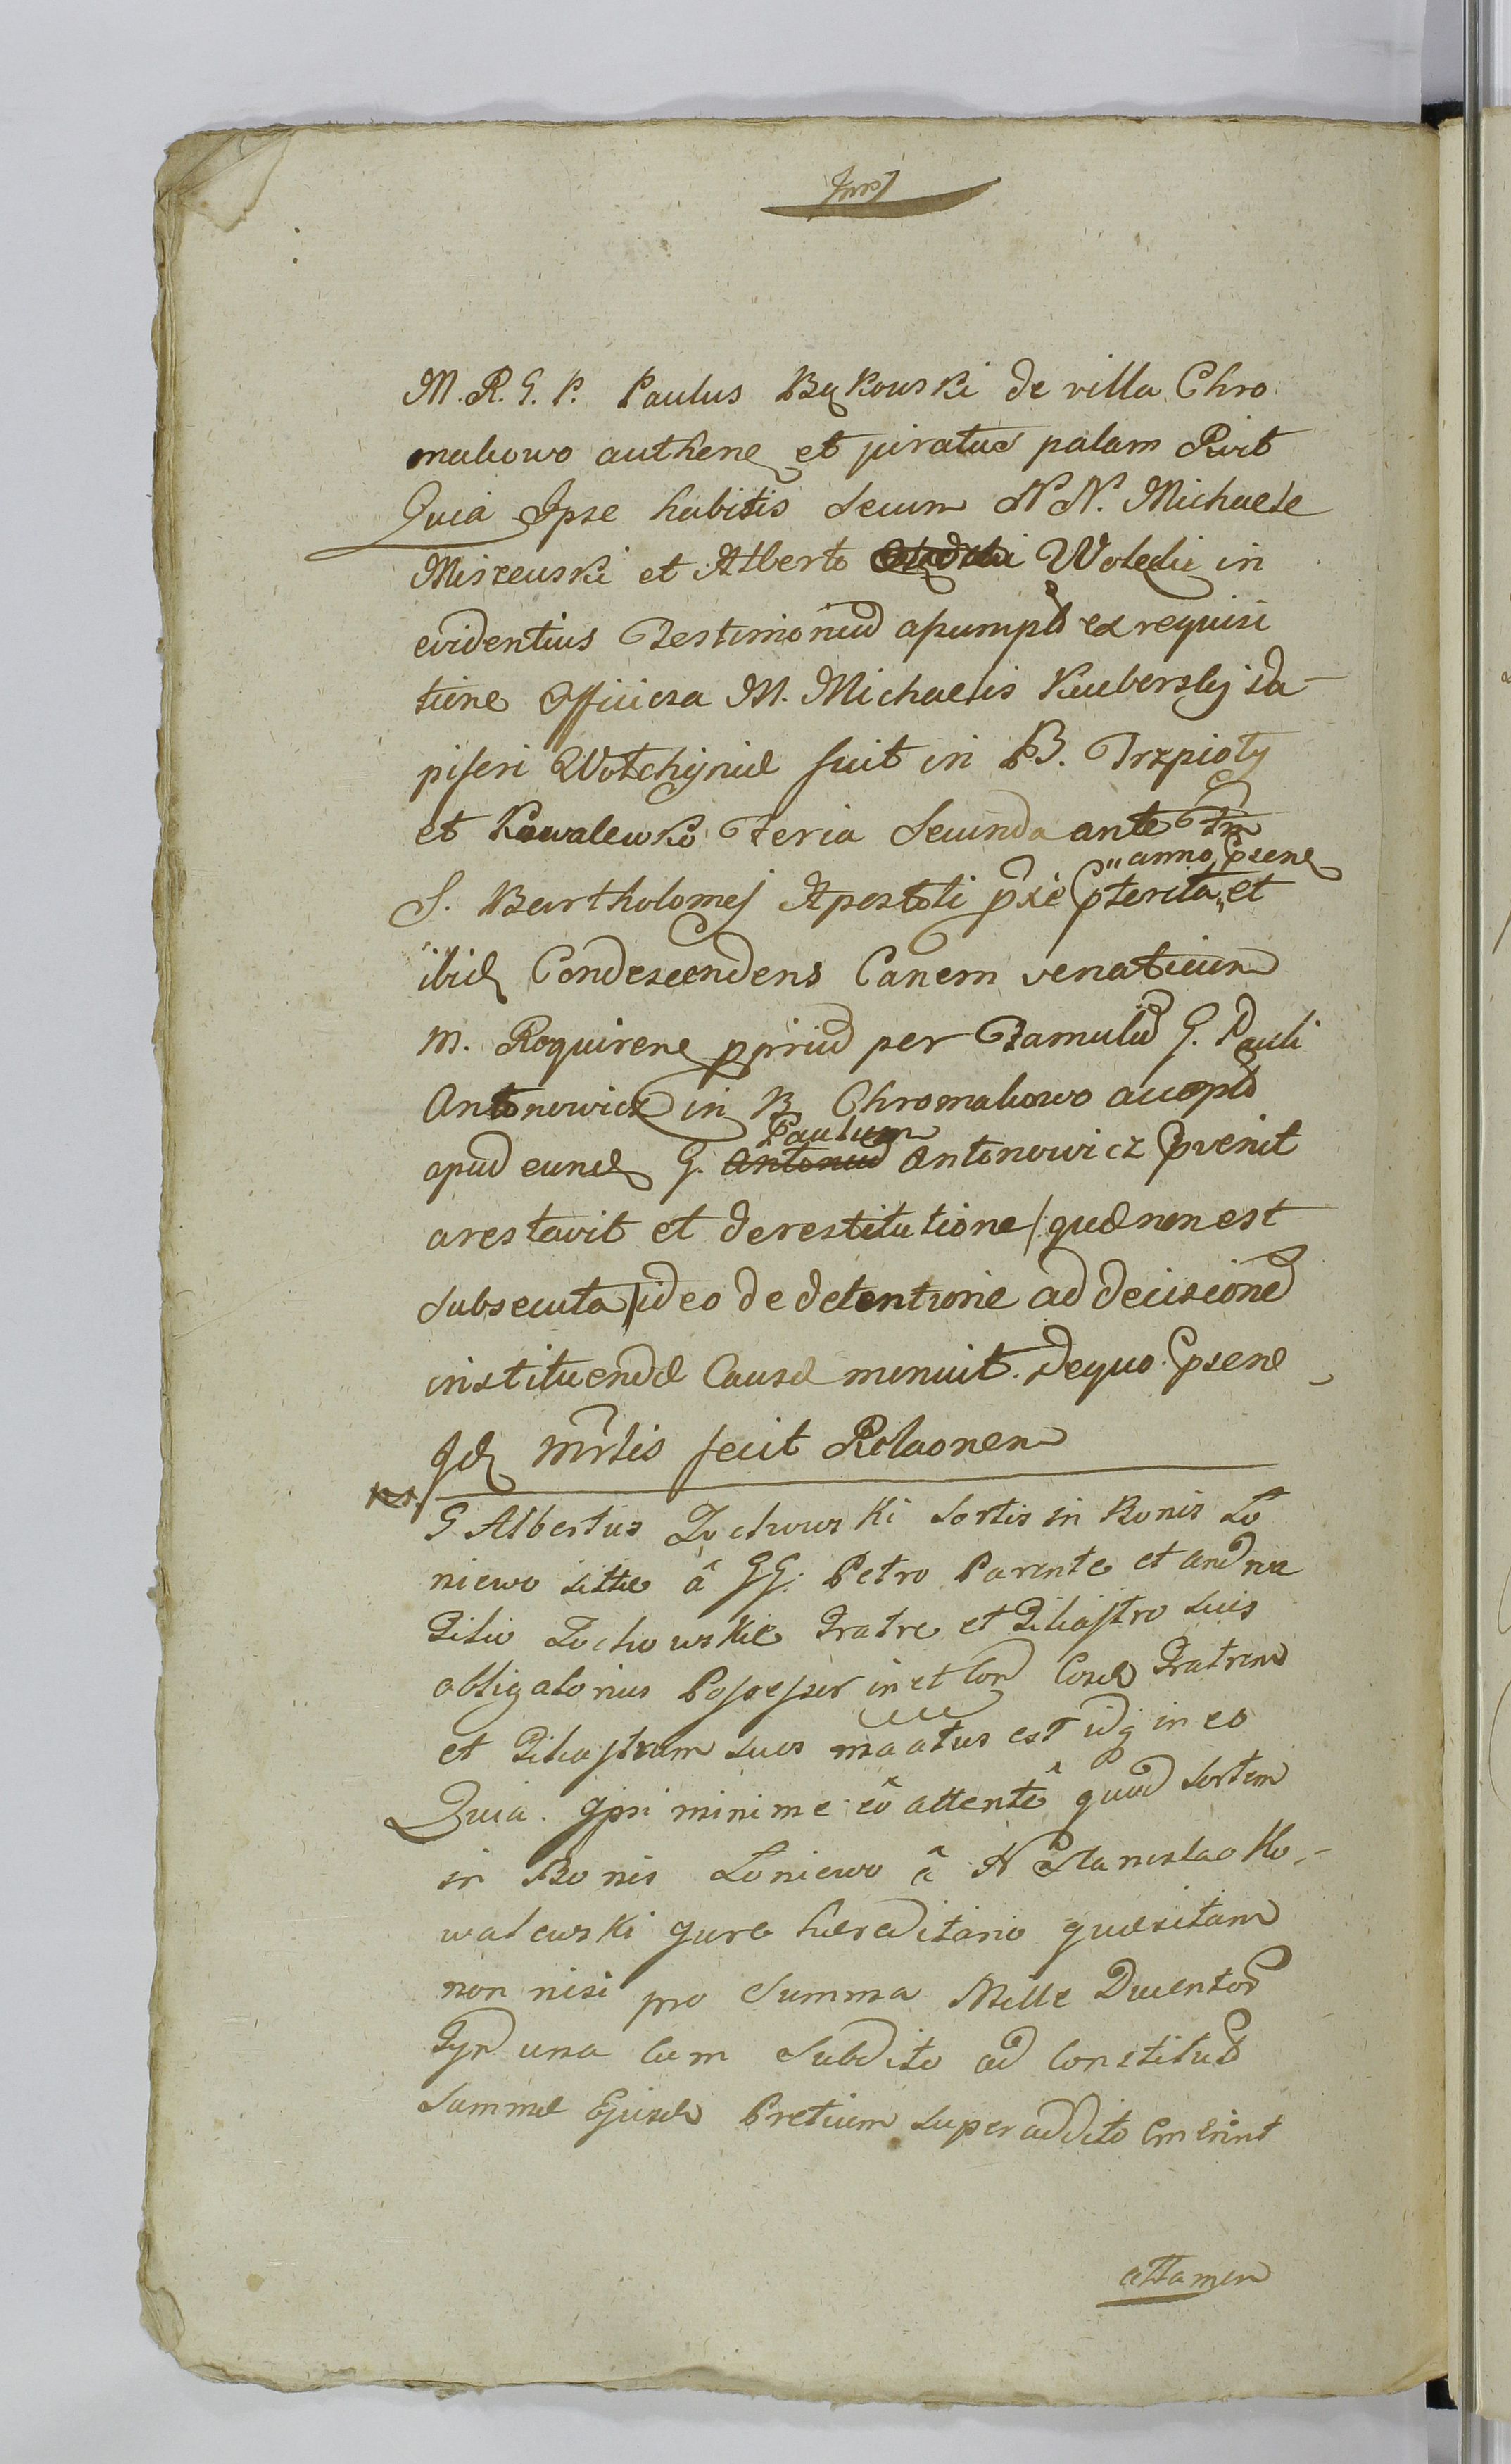 M. R. G. P. Paulus Bąkowski de villa Chro
makowo authene et juratus palam Rvit
Quia Ipse habitis secum N N. Michaele
Miszewski et Alberto Woledie in
evidentius Testimoniũ assumpt ex requisi
tione Officiosa M. Michaelis Kuoberskj da-
piferi Wołchyniæ fuit in B. Trzpioły
et Kowalewko Feria Secunda ante Fm
anno psene
S. Bartholomej Apostoli pxie pterita, et
ibid Condescendens Canem venaticum
M. Requirene ppriũ per Famulũ G. Pauli
Antonowicz in B. Chromakowo accept
Paulum
apud eund G. Antoniũ Antonowicz pvenit
arestavit et de restitutione /: quæ non est
subsecuta / ideo de detentione ad decisionẽ
instituendæ Causæ monuit. de quo psene
Id Mrlis fecit Relaonem
G Albertus Żochowski Sortis in Bonis Ło
niewo sittæ â GG. Petro Parente et Andrea
Filio Żochowskie Fratre et Filiastro suis
obligatorius Possessor in et Con Cosdẽ Fratrem
et Filiastrum suos maatus est idq in eo
Quia. Ipsi minime eô attentô quod Sortem
in Bonis Łoniewo â N Stanislao Ko-
walewski Jure hæreditario quæsitam
non nisi pro Summa Mille Ducentor
Fyn una Cum Subdito ad Constitut
Summæ Ejusdẽ Pretium superaddito Emerint
attamen